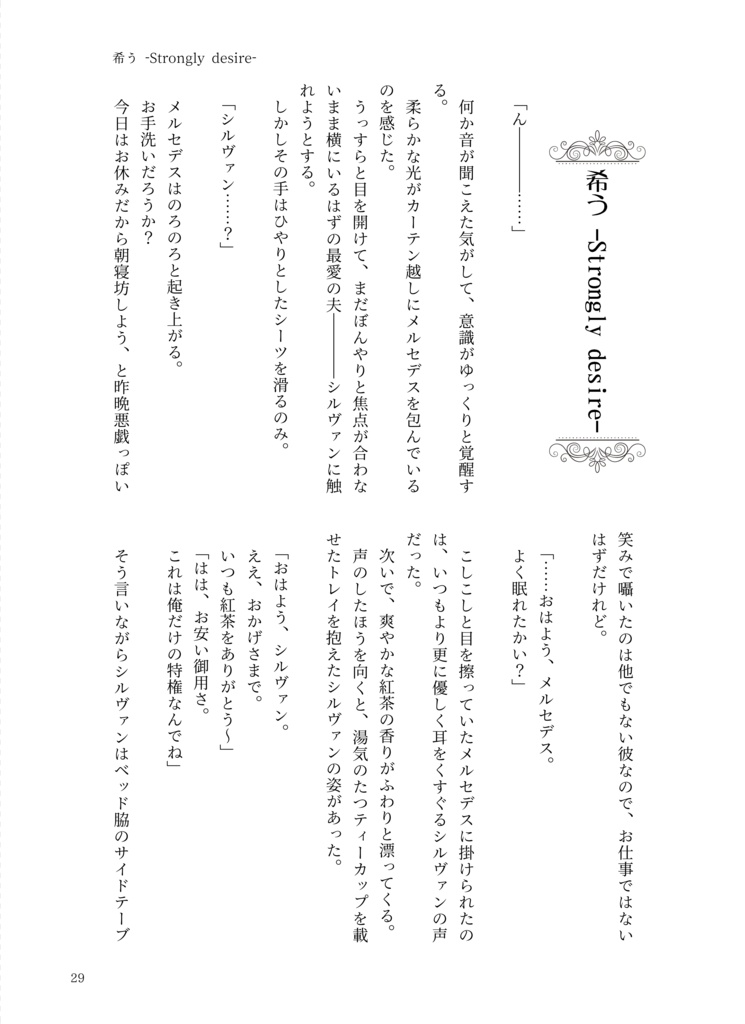 希う -Strongly desire-
希う -Strongly desire-
「ん――――……」
何か音が聞こえた気がして、意識がゆっくりと覚醒す
る。
柔らかな光がカーテン越しにメルセデスを包んでいる
のを感じた。
うっすらと目を開けて、まだぼんやりと焦点が合わな
いまま横にいるはずの最愛の夫――――シルヴァンに触
れようとする。
しかしその手はひやりとしたシーツを滑るのみ。
「シルヴァン……?」
メルセデスはのろのろと起き上がる。
お手洗いだろうか?
今日はお休みだから朝寝坊しよう、と昨晩悪戯っぽい
笑みで囁いたのは他でもない彼なので、お仕事ではない
はずだけれど。
「……おはよう、メルセデス。
よく眠れたかい?」
こしこしと目を擦っていたメルセデスに掛けられたの
は、いつもより更に優しく耳をくすぐるシルヴァンの声
だった。
次いで、爽やかな紅茶の香りがふわりと漂ってくる。
声のしたほうを向くと、湯気のたつティーカップを載
せたトレイを抱えたシルヴァンの姿があった。
「おはよう、シルヴァン。
ええ、おかげさまで。
いつも紅茶をありがとう~」
「はは、お安い御用さ。
これは俺だけの特権なんでね」
そう言いながらシルヴァンはベッド脇のサイドテーブ
29